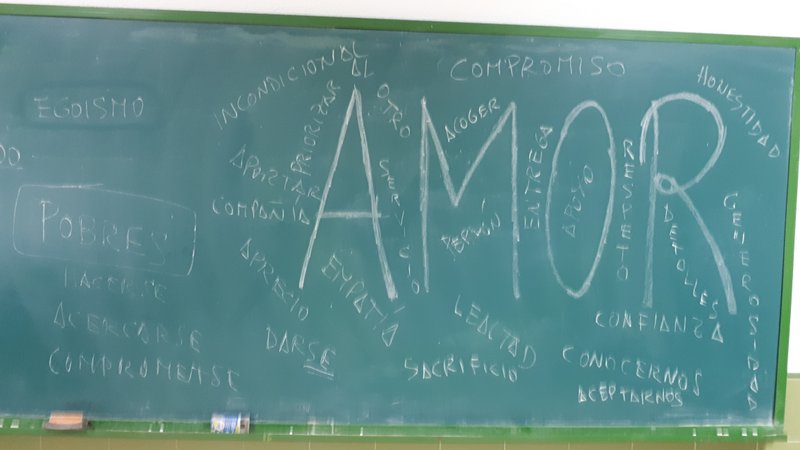 EGOISMO
DO
POBRES
HACERSE
ACERCARSE
COMPROMETERSE
INCONDICIONAL
PRIORIZAR AL OTRO
COMPROMISO
HONESTIDAD
ACOGER
APORTAR
COMPAÑIA
SERVICIO
AMOR
ENTREGA
APOYO
RESPETO
PERDÓN
DETALLES
GENEROSIDAD
APRECIO
EMPATÍA
DARSE
LEALTAD
SACRIFICIO
CONFIANZA
CONOCERNOS
ACEPTARNOS